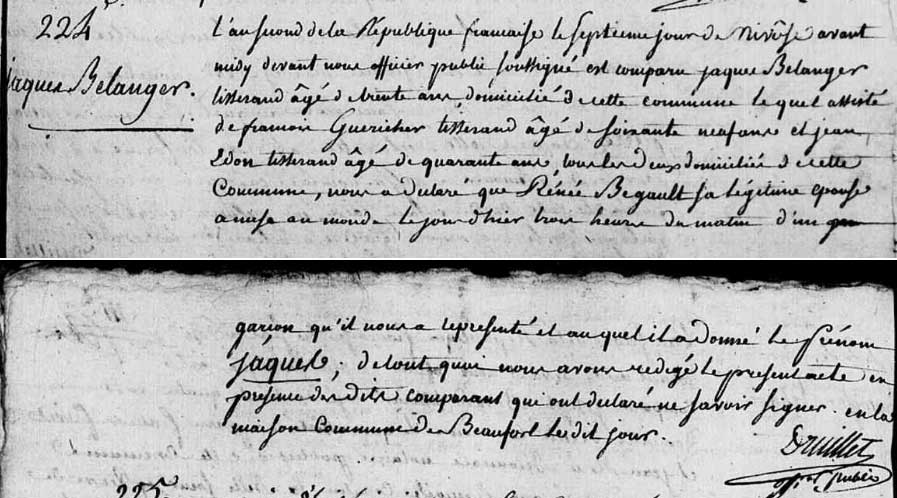 224
jaques Belanger.
L'an second de la République francaise le septieme jour de Nivôse avant
midy devant nous officier public soussigné est comparu jaques Belanger
tisserand âgé de trente ans, domicilié de cette commune lequel assisté
de francois Guericher tisserand âgé de soixante neuf ans et jean
Edon tisserand âgé de quarante ans, tous les deux domiciliés de cette
Commune, nous a declaré que Rénée Begault sa légitime epouse
a mise au monde le jour d'hier trois heure du matin d'un
garson qu'il nous a representé et auquel il a donné le Prénom
jâques; de tout quoi nous avons redigé le present acte en
presence des dits comparant qui ont declaré ne savoir signer. en la
maison Commune de Beaufort ledit jour.
Druillet
off. Public
225.